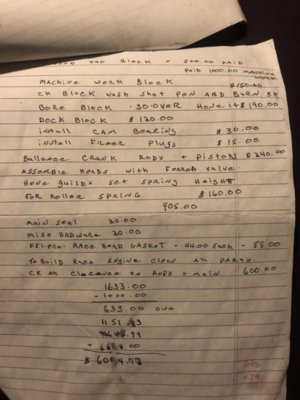 USED 440 BLOCK - 500.00 PAID
PAID 1000.00 MACHINE WORK
MACHINE WORK BLOCK
CK BLOCK WASH SHOT PEN AND BURN BK $150.00
BORE BLOCK .30-OVER HONE it $190.00
DECK BLOCK $120.00
install CAM BEARING $30.00
install FREEZ Plugs $15.00
BALLANCE CRANK RODS + PISTONS $240.00
ASSEMBLE HEADS WITH VALVE
HONE GUILD'S SET SPRING HEIGHT
FOR ROLLER SPRING $160.00
905.00
MAIN SEAL 20.00
MISC HARDWARE 20.00
FEL-PRO-RACE HEAD GASKET - 44.00 EACH - 88.00
TO BUILD RACE ENGINE CLEAN All PARTS
CK CLEARANCE ON RODS + MAIN 600.00
1633.00
- 1000.00
633.00
$ 6054.72